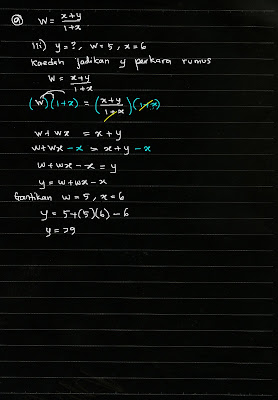 a) W = x+y / 1+x
iii) y = ?, w = 5, x = 6
Kaedah jadikan y perkara rumus
W = x+y / 1+x
(W)(1+x) = (x+y / 1+x)(1+x)
w + wx = x + y
w + wx - x = x + y - x
w + wx - x = y
y = w + wx - x
Gantikan w = 5, x = 6
y = 5 + (5)(6) - 6
y = 29